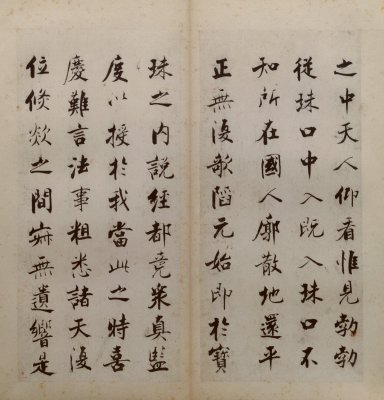 之中天人仰看惟見勃勃
從珠口中入既入珠口不
知所在國人廓散地還平
正無復欹陷元始即於寶
珠之內說經都竟衆真監
度以授於我當此之時喜
慶難言法事粗悉諸天復
位倏欻之間寂無遺響是